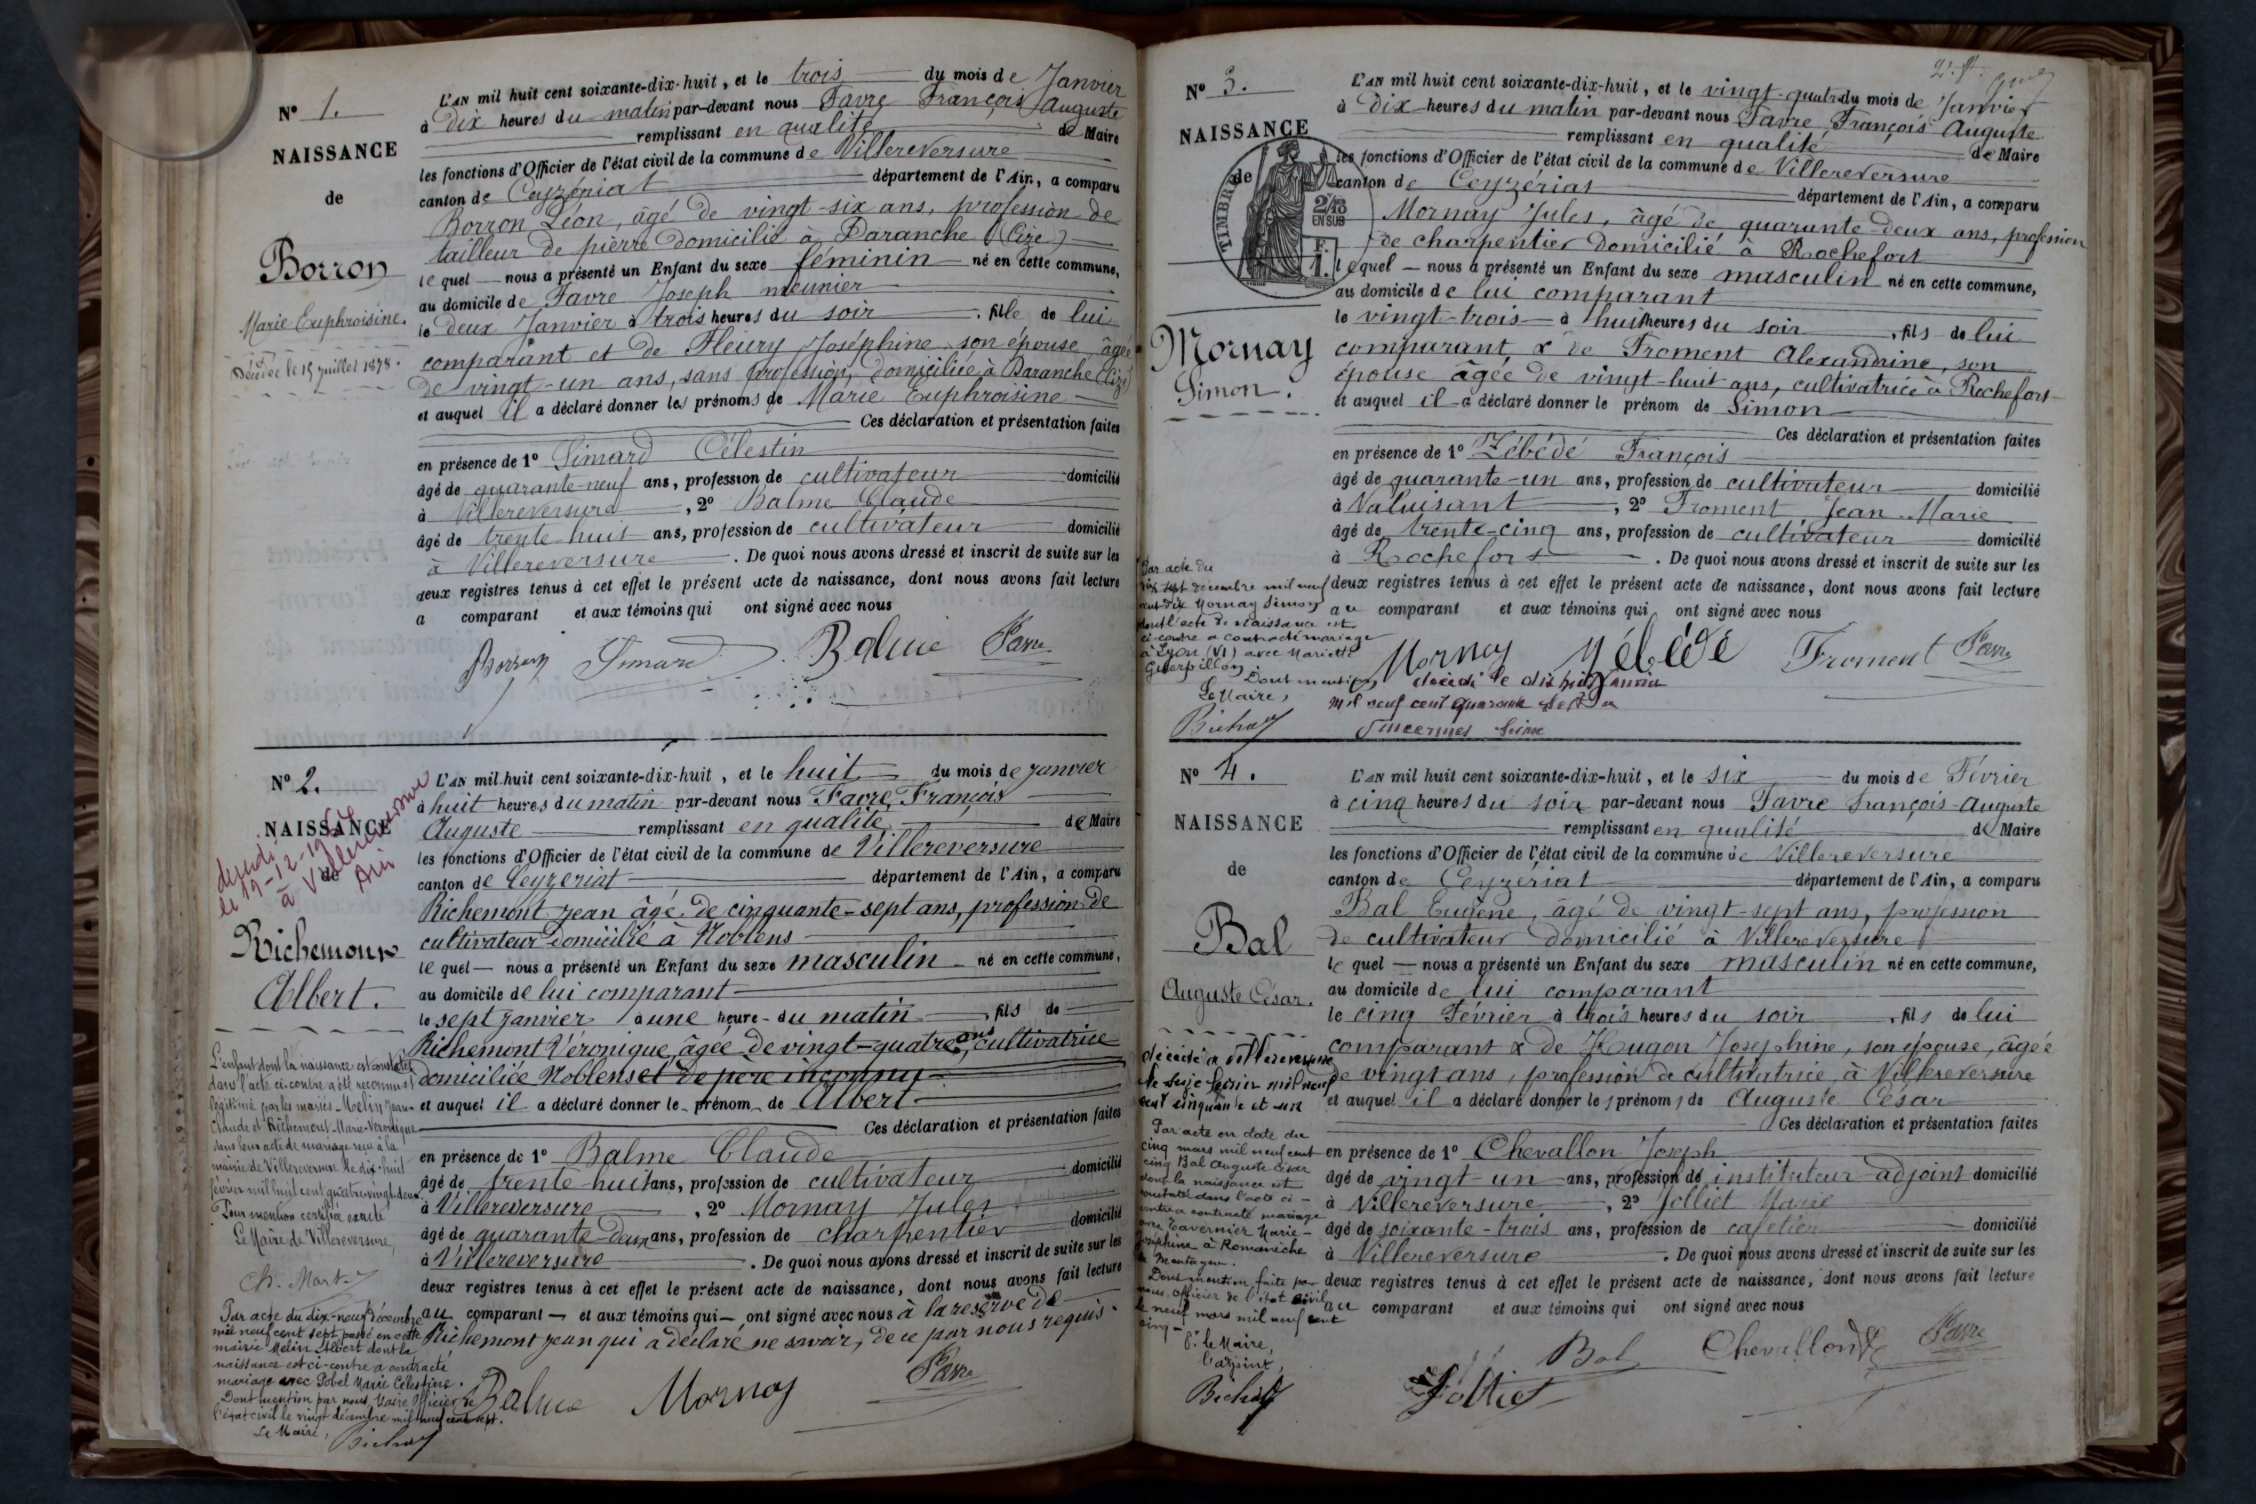 N° 1.
NAISSANCE
de
Borron
Marie Euphroisine.
Décédée le 15 juillet 1878.
L'AN mil huit cent soixante-dix-huit, et le trois du mois de Janvier
à dix heures du matin par-devant nous Favre François Auguste
remplissant en qualité de Maire
les fonctions d'Officier de l'état civil de la commune de Villereversure
canton de Ceyzériat département de l'Ain, a comparu
Borron Léon, âgé de vingt-six ans, profession de
tailleur de pierre domicilié à Daranche (Cize)
lequel nous a présenté un Enfant du sexe féminin né en cette commune,
au domicile de Favre Joseph meunier
le deux Janvier à trois heures du soir, fille de lui
comparant et de Fleury Joséphine son épouse âgée
de vingt-un ans, sans profession, domiciliée à Daranche (Cize)
et auquel il a déclaré donner les prénoms de Marie Euphroisine
Ces déclaration et présentation faites
en présence de 1° Simard Célestin
âgé de quarante-neuf ans, profession de cultivateur domicilié
à Villereversure, 2° Balme Claude
âgé de trente huit ans, profession de cultivateur domicilié
à Villereversure. De quoi nous avons dressé et inscrit de suite sur les
deux registres tenus à cet effet le présent acte de naissance, dont nous avons fait lecture
a comparant et aux témoins qui ont signé avec nous
Borron Simard Balme Favre
N° 2.
NAISSANCE
de
décédé
le 19-12-19
à Villereversure
Ain
Richemont
Albert.
L'enfant dont la naissance est constatée
dans l'acte ci-contre a été reconnu et
légitimé par les mariés Melin Jean-
Claude et Richemont Marie-Véronique
dans leur acte de mariage reçu à la
mairie de Villereversure le dix-huit
février mil huit cent quatre-vingt-deux.
Pour mention certifiée exacte
Le Maire de Villereversure,
Par acte du dix-neuf Décembre
mil neuf cent sept passé en cette
mairie Melin Albert dont la
naissance est ci-contre a contracté
mariage avec Pobel Marie Célestine.
Dont mention par nous, Maire Officier de
l'état civil le vingt décembre mil neuf cent sept.
Le Maire,
L'AN mil huit cent soixante-dix-huit, et le huit du mois de janvier
à huit heures du matin par-devant nous Favre, François
Auguste remplissant en qualité de Maire
les fonctions d'Officier de l'état civil de la commune de Villereversure
canton de Ceyzeriat département de l'Ain, a comparu
Richemont jean âgé de cinquante-sept ans, profession de
cultivateur domicilié à Noblens
lequel nous a présenté un Enfant du sexe masculin né en cette commune,
au domicile de lui comparant
le sept janvier à une heure du matin, fils de
Richemont Véronique, âgée de vingt-quatre ans, cultivatrice
domiciliée Noblens et de père inconnu
et auquel il a déclaré donner le prénom de Albert
Ces déclaration et présentation faites
en présence de 1° Balme Claude
âgé de trente-huit ans, profession de cultivateur domicilié
à Villereversure, 2° Mornay Jules
âgé de quarante-deux ans, profession de charpentier domicilié
à Villereversure. De quoi nous avons dressé et inscrit de suite sur les
deux registres tenus à cet effet le présent acte de naissance, dont nous avons fait lecture
au comparant et aux témoins qui ont signé avec nous à la reserve de
Richemont jean qui a déclaré ne savoir, de ce par nous requis.
Balme Mornay Favre
N° 3.
NAISSANCE
de
TIMBRE
2/10
EN SUS
Mornay
Simon.
Par acte du
dix sept décembre mil neuf
cent dix Mornay Simon
dont l'acte de naissance est
ci-contre a contracté mariage
à Lyon (VI) avec Mariette
Dont mention
Le Maire,
L'AN mil huit cent soixante-dix-huit, et le vingt-quatre du mois de Janvier
à dix heures du matin par-devant nous Favre François Auguste
remplissant en qualité de Maire
les fonctions d'Officier de l'état civil de la commune de Villereversure
canton de Ceyzériat département de l'Ain, a comparu
Mornay Jules, âgé de quarante-deux ans, profession
de charpentier domicilié à Rochefort
lequel nous a présenté un Enfant du sexe masculin né en cette commune,
au domicile de lui comparant
le vingt-trois à huit heures du soir, fils de lui
comparant & de Froment Alexandrine, son
épouse âgée de vingt-huit ans, cultivatrice à Rochefort
et auquel il a déclaré donner le prénom de Simon
Ces déclaration et présentation faites
en présence de 1° Zébédé François
âgé de quarante-un ans, profession de cultivateur domicilié
à Valuisant, 2° Froment Jean-Marie
âgé de trente-cinq ans, profession de cultivateur domicilié
à Rochefort. De quoi nous avons dressé et inscrit de suite sur les
deux registres tenus à cet effet le présent acte de naissance, dont nous avons fait lecture
au comparant et aux témoins qui ont signé avec nous
Mornay Zébédé Froment Favre
décédé le dix huit Janvier
mil neuf cent quarante sept à
Vincennes Seine
N° 4.
NAISSANCE
de
Bal
Auguste César.
décédé à Villereversure
le seize février mil neuf
cent cinquante et un
Par acte en date du
cinq mars mil neuf cent
cinq Bal Auguste César
dont la naissance est
constatée dans l'acte ci-
contre a contracté mariage
avec Tavernier Marie-
Joséphine à Romanèche
la Montagne.
Dont mention faite par
nous, officier de l'état civil
le neuf mars mil neuf cent
cinq
Pr le Maire,
l'adjoint,
L'AN mil huit cent soixante-dix-huit, et le six du mois de Février
à cinq heures du soir par-devant nous Favre François-Auguste
remplissant en qualité de Maire
les fonctions d'Officier de l'état civil de la commune de Villereversure
canton de Ceyzériat département de l'Ain, a comparu
Bal Eugène, âgé de vingt-sept ans, profession
de cultivateur domicilié à Villereversure
lequel nous a présenté un Enfant du sexe masculin né en cette commune,
au domicile de lui comparant
le cinq Février à trois heures du soir, fils de lui
comparant & de Hugon Joséphine, son épouse, âgée
de vingt ans, profession de cultivatrice, à Villereversure
et auquel il a déclaré donner les prénoms de Auguste César
Ces déclaration et présentation faites
en présence de 1° Chevallon Joseph
âgé de vingt-un ans, profession de instituteur adjoint domicilié
à Villereversure, 2° Jolliet Marie
âgé de soixante-trois ans, profession de cafetier domicilié
à Villereversure. De quoi nous avons dressé et inscrit de suite sur les
deux registres tenus à cet effet le présent acte de naissance, dont nous avons fait lecture
au comparant et aux témoins qui ont signé avec nous
Bal Chevallon Favre
Jolliet